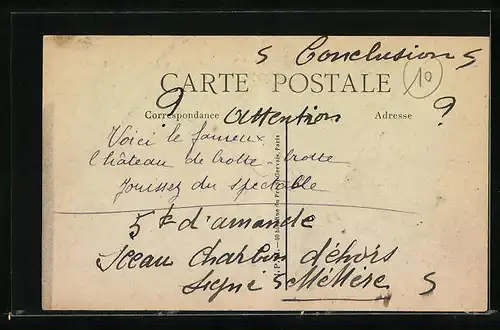 5 Conclusion 5
10
CARTE POSTALE
Correspondance Attention Adresse
? ?
Voici le fameux
Château de Crotte-Crotte
Jouissez du spectacle
5 d'amande
Sceau Charbon déhors
Signé 5 5